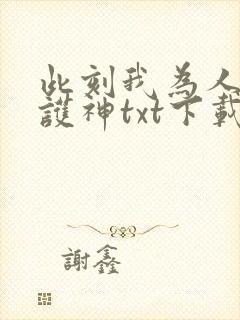 此刻我為人
護神txt下載
謝鑫